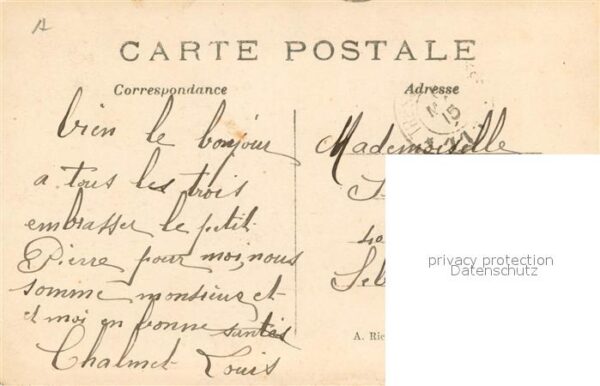 CARTE POSTALE
Correspondance
Adresse
bien le bonjour
a tous les trois
embrasser le petit
Pierre pour moi, nous
somme monsieur et
et moi en bonne santés
Chalmet Louis
Mademoiselle
40
Seb
A. Ric
privacy protection
Datenschutz